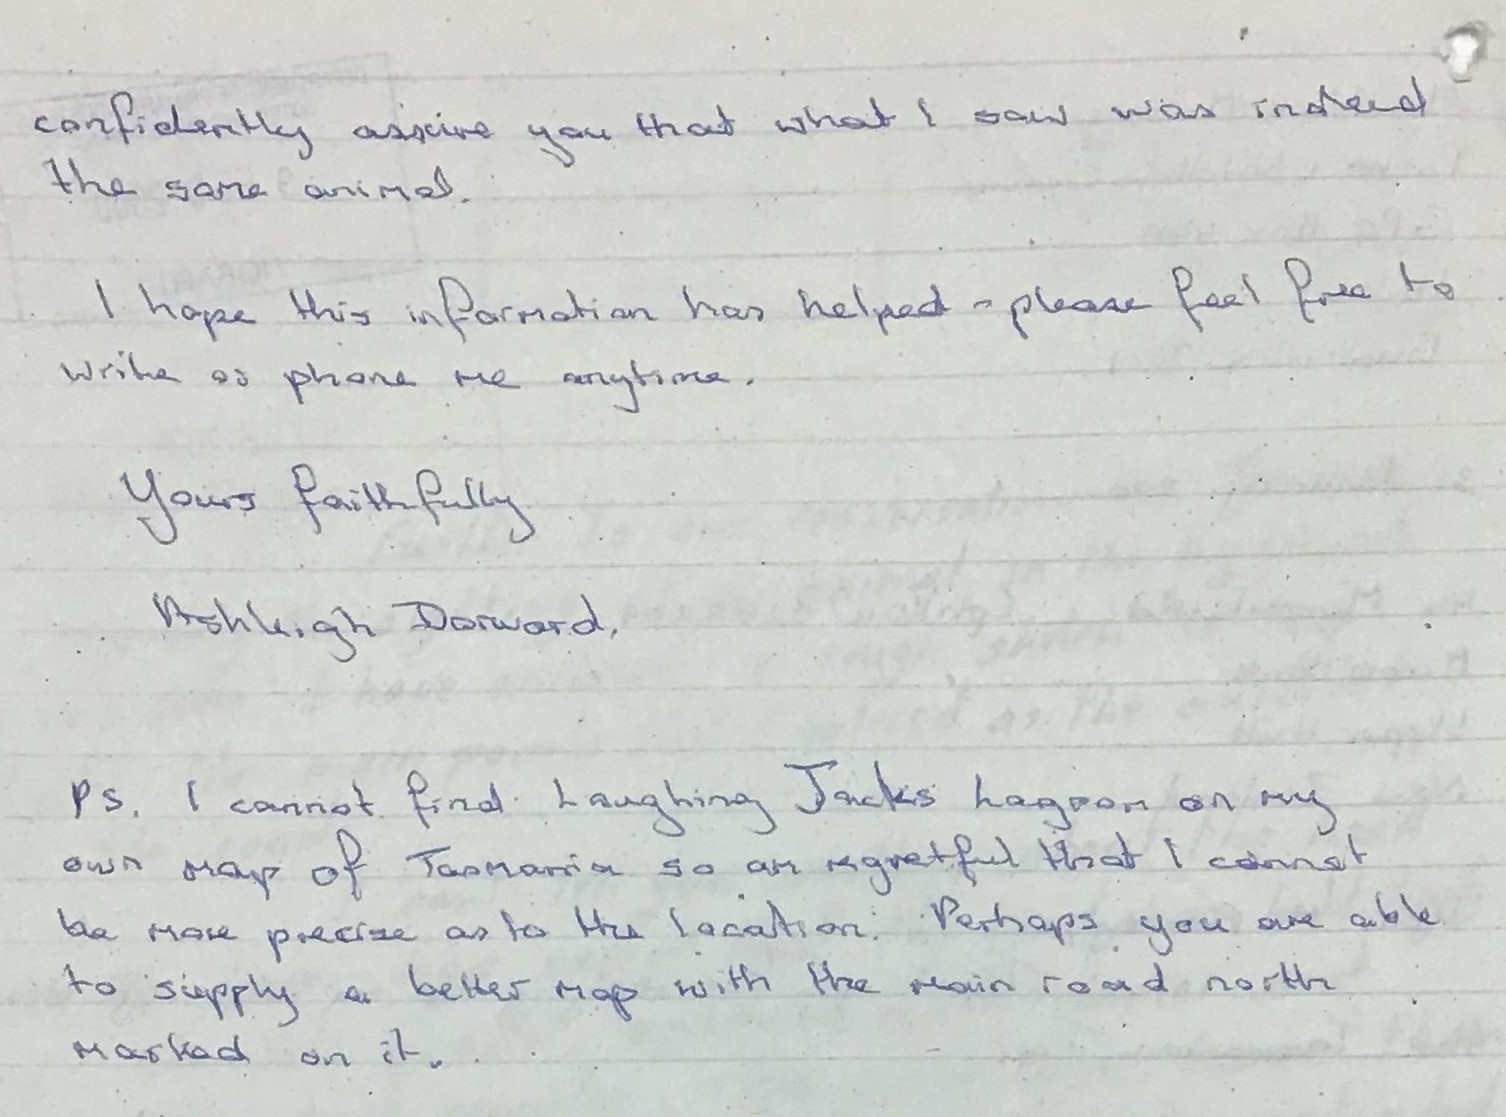 confidently assure you that what I saw was indeed
the same animal.
I hope this information has helped - please feel free to
write or phone me anytime.
Yours faithfully
Ashleigh Dorward.
PS. I cannot find Laughing Jacks Lagoon on my
own map of Tasmania so am regretful that I cannot
be more precise as to the location. Perhaps you are able
to supply a better map with the main road north
marked on it.